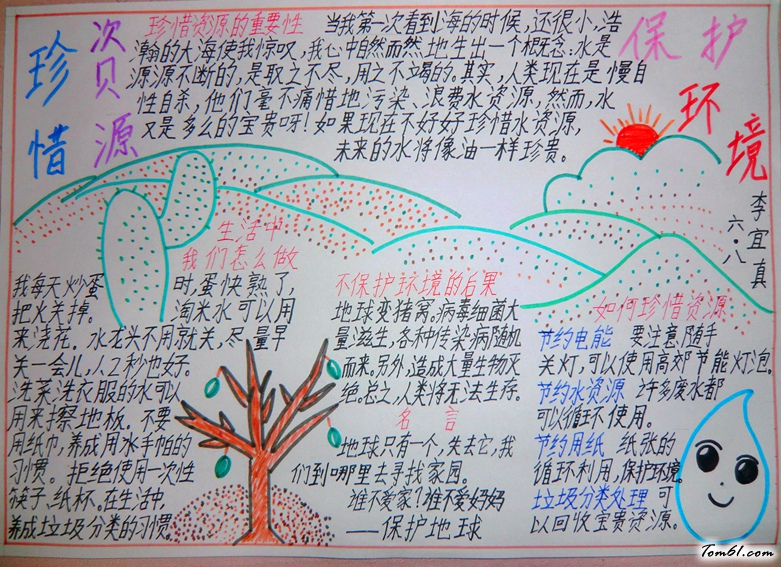 珍惜
资源
保护
环境
李宜真
六.八
珍惜资源的重要性 当我第一次看到海的时候,还很小,浩
瀚的大海使我惊叹,我心中自然而然地生出一个概念:水是
源源不断的,是取之不尽,用之不竭的。其实,人类现在是慢自
性自杀,他们毫不痛惜地污染、浪费水资源,然而,水
又是多么的宝贵呀!如果现在不好好珍惜水资源,
未来的水将像油一样珍贵。
生活中
我们怎么做
我每天炒蛋时,蛋快熟了,
把火关掉。淘米水可以用
来浇花。水龙头不用就关,尽量早
关一会儿,人2秒也好。
洗菜洗衣服的水可以
用来擦地板。不要
用纸巾,养成用水手帕的
习惯。拒绝使用一次性
筷子、纸杯。在生活中,
养成垃圾分类的习惯。
不保护环境的后果
地球变猪窝。病毒细菌大
量滋生,各种传染病随机
而来。另外,造成大量生物灭
绝。总之,人类将无法生存。
名言
地球只有一个,失去它,我
们到哪里去寻找家园。
谁不爱家?谁不爱妈妈
——保护地球
如何珍惜资源
节约电能 要注意随手
关灯,可以使用高效节能灯泡。
节约水资源 许多废水都
可以循环使用。
节约用纸 纸张的
循环利用,保护环境。
垃圾分类处理 可
以回收宝贵资源。
Tom61.com